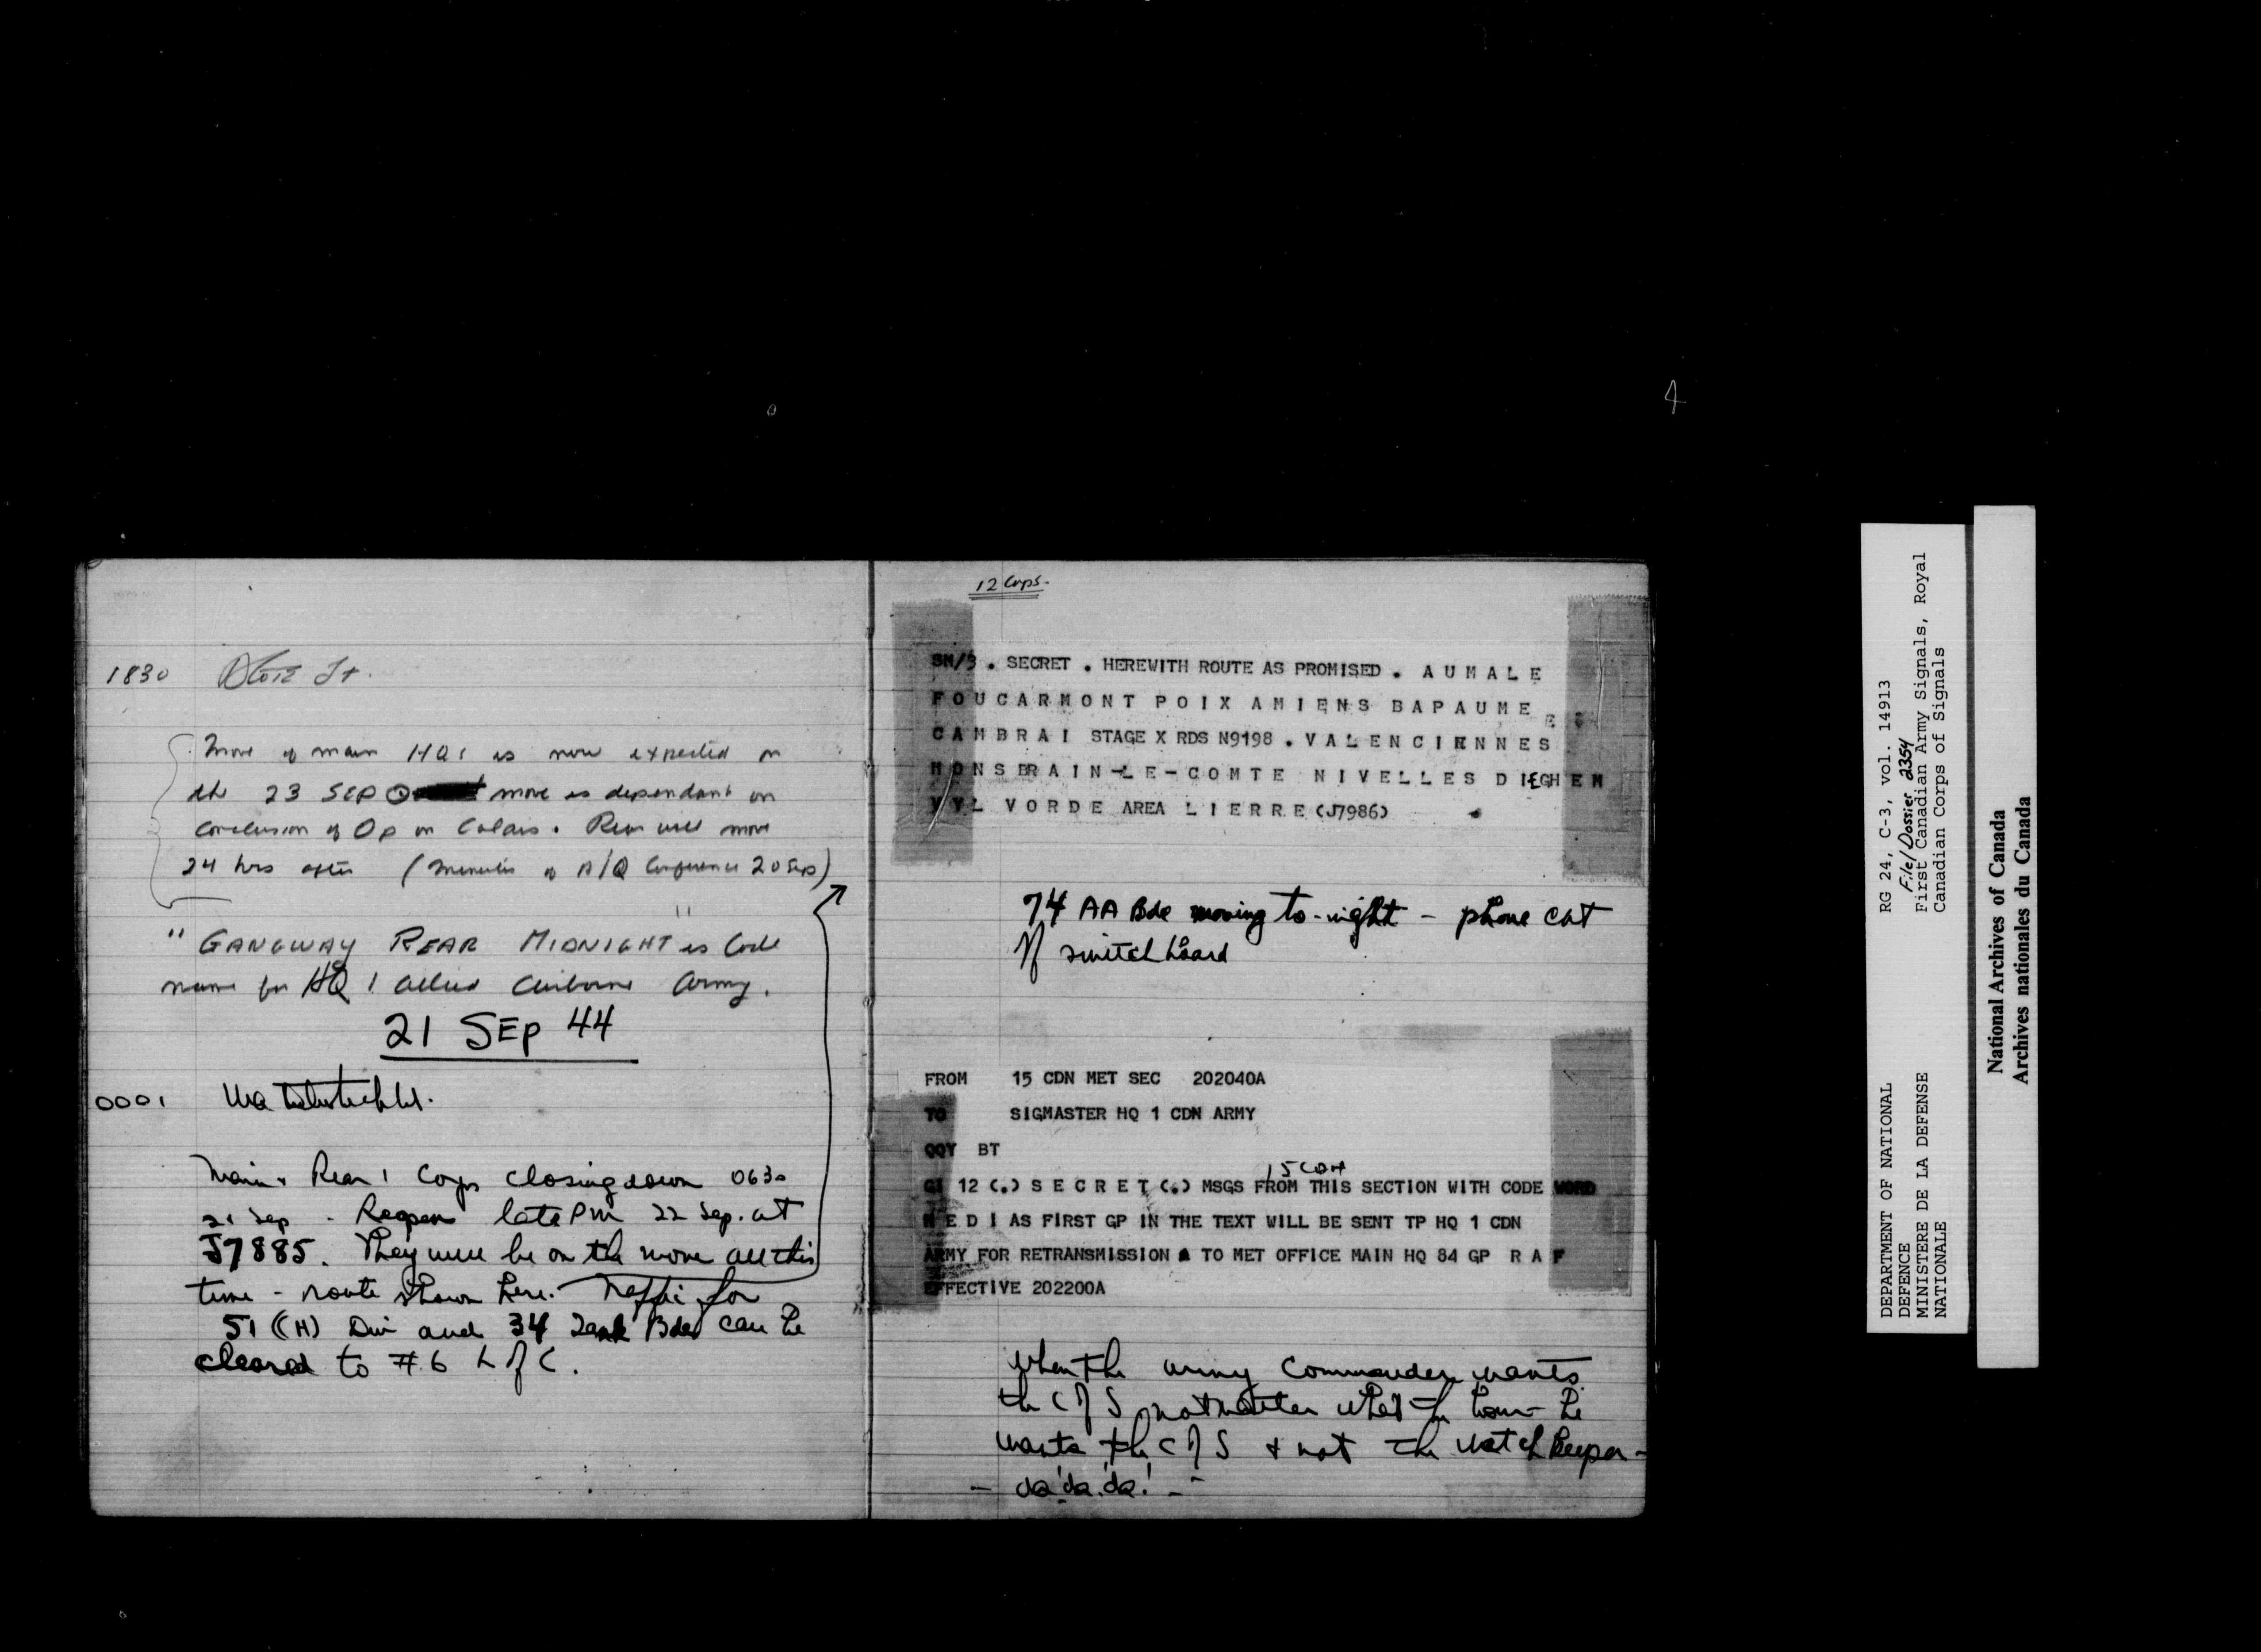 1830 Lt.
Move of main HQs is now expected on
the 23 SEP move is dependant on
Conclusion of Op on Calais. Rear will move
24 hrs after (minutes of A/Q Conference 20 Sep)
"GANGWAY REAR MIDNIGHT" is Code
name for HQ 1 Allied Airborne Army.
21 SEP 44
0001
Main & Rear 1 Corps closing down 0630
21 Sep - Reopen late PM 22 Sep. at
J7885. They will be on the move all this
time - route shown here. Traffic for
51 (H) Div and 34 Tank Bde can be
cleared to #6 L of C.
12 Corps.
SM/3 . SECRET . HEREWITH ROUTE AS PROMISED . A U M A L E
F O U C A R M O N T P O I X A M I E N S B A P A U M E
C A M B R A I STAGE X RDS N9198 . V A L E N C I E N N E S
M O N S BR A I N - L E - C O M T E N I V E L L E S D I EGH E M
V Y L V O R D E AREA L I E R R E (J7986)
74 AA Bde moving to-night - phone cut
off switchboard
FROM 15 CDN MET SEC 202040A
TO SIGMASTER HQ 1 CDN ARMY
QQY BT
15 CDN
GI 12 (.) S E C R E T (.) MSGS FROM THIS SECTION WITH CODE WORD
M E D I AS FIRST GP IN THE TEXT WILL BE SENT TP HQ 1 CDN
ARMY FOR RETRANSMISSION TO MET OFFICE MAIN HQ 84 GP R A F
EFFECTIVE 202200A
When the army Commander wants
the C of S no matter what the hour he
wants the C of S & not the watch keeper -
- da! da! da! - -
4
DEPARTMENT OF NATIONAL DEFENCE
MINISTERE DE LA DEFENSE NATIONALE
RG 24, C-3, vol. 14913
File/Dossier 2354
First Canadian Army Signals, Royal
Canadian Corps of Signals
National Archives of Canada
Archives nationales du Canada